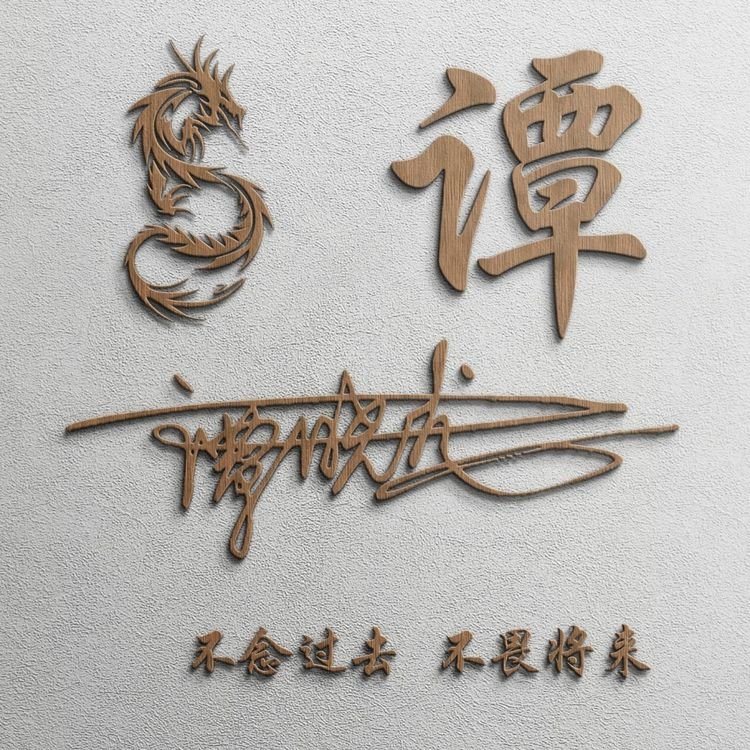 谭
不念过去 不畏将来